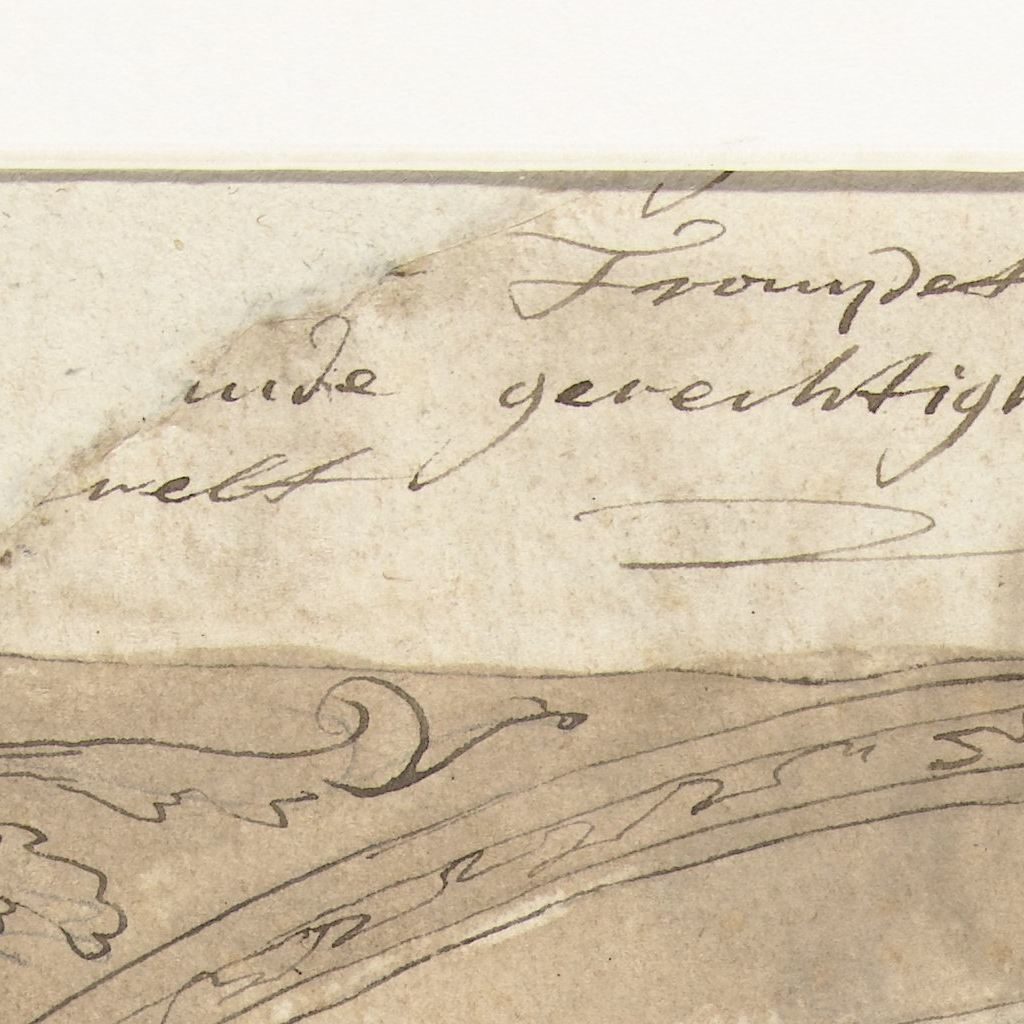 Trompet
unde gerechtigk
welt